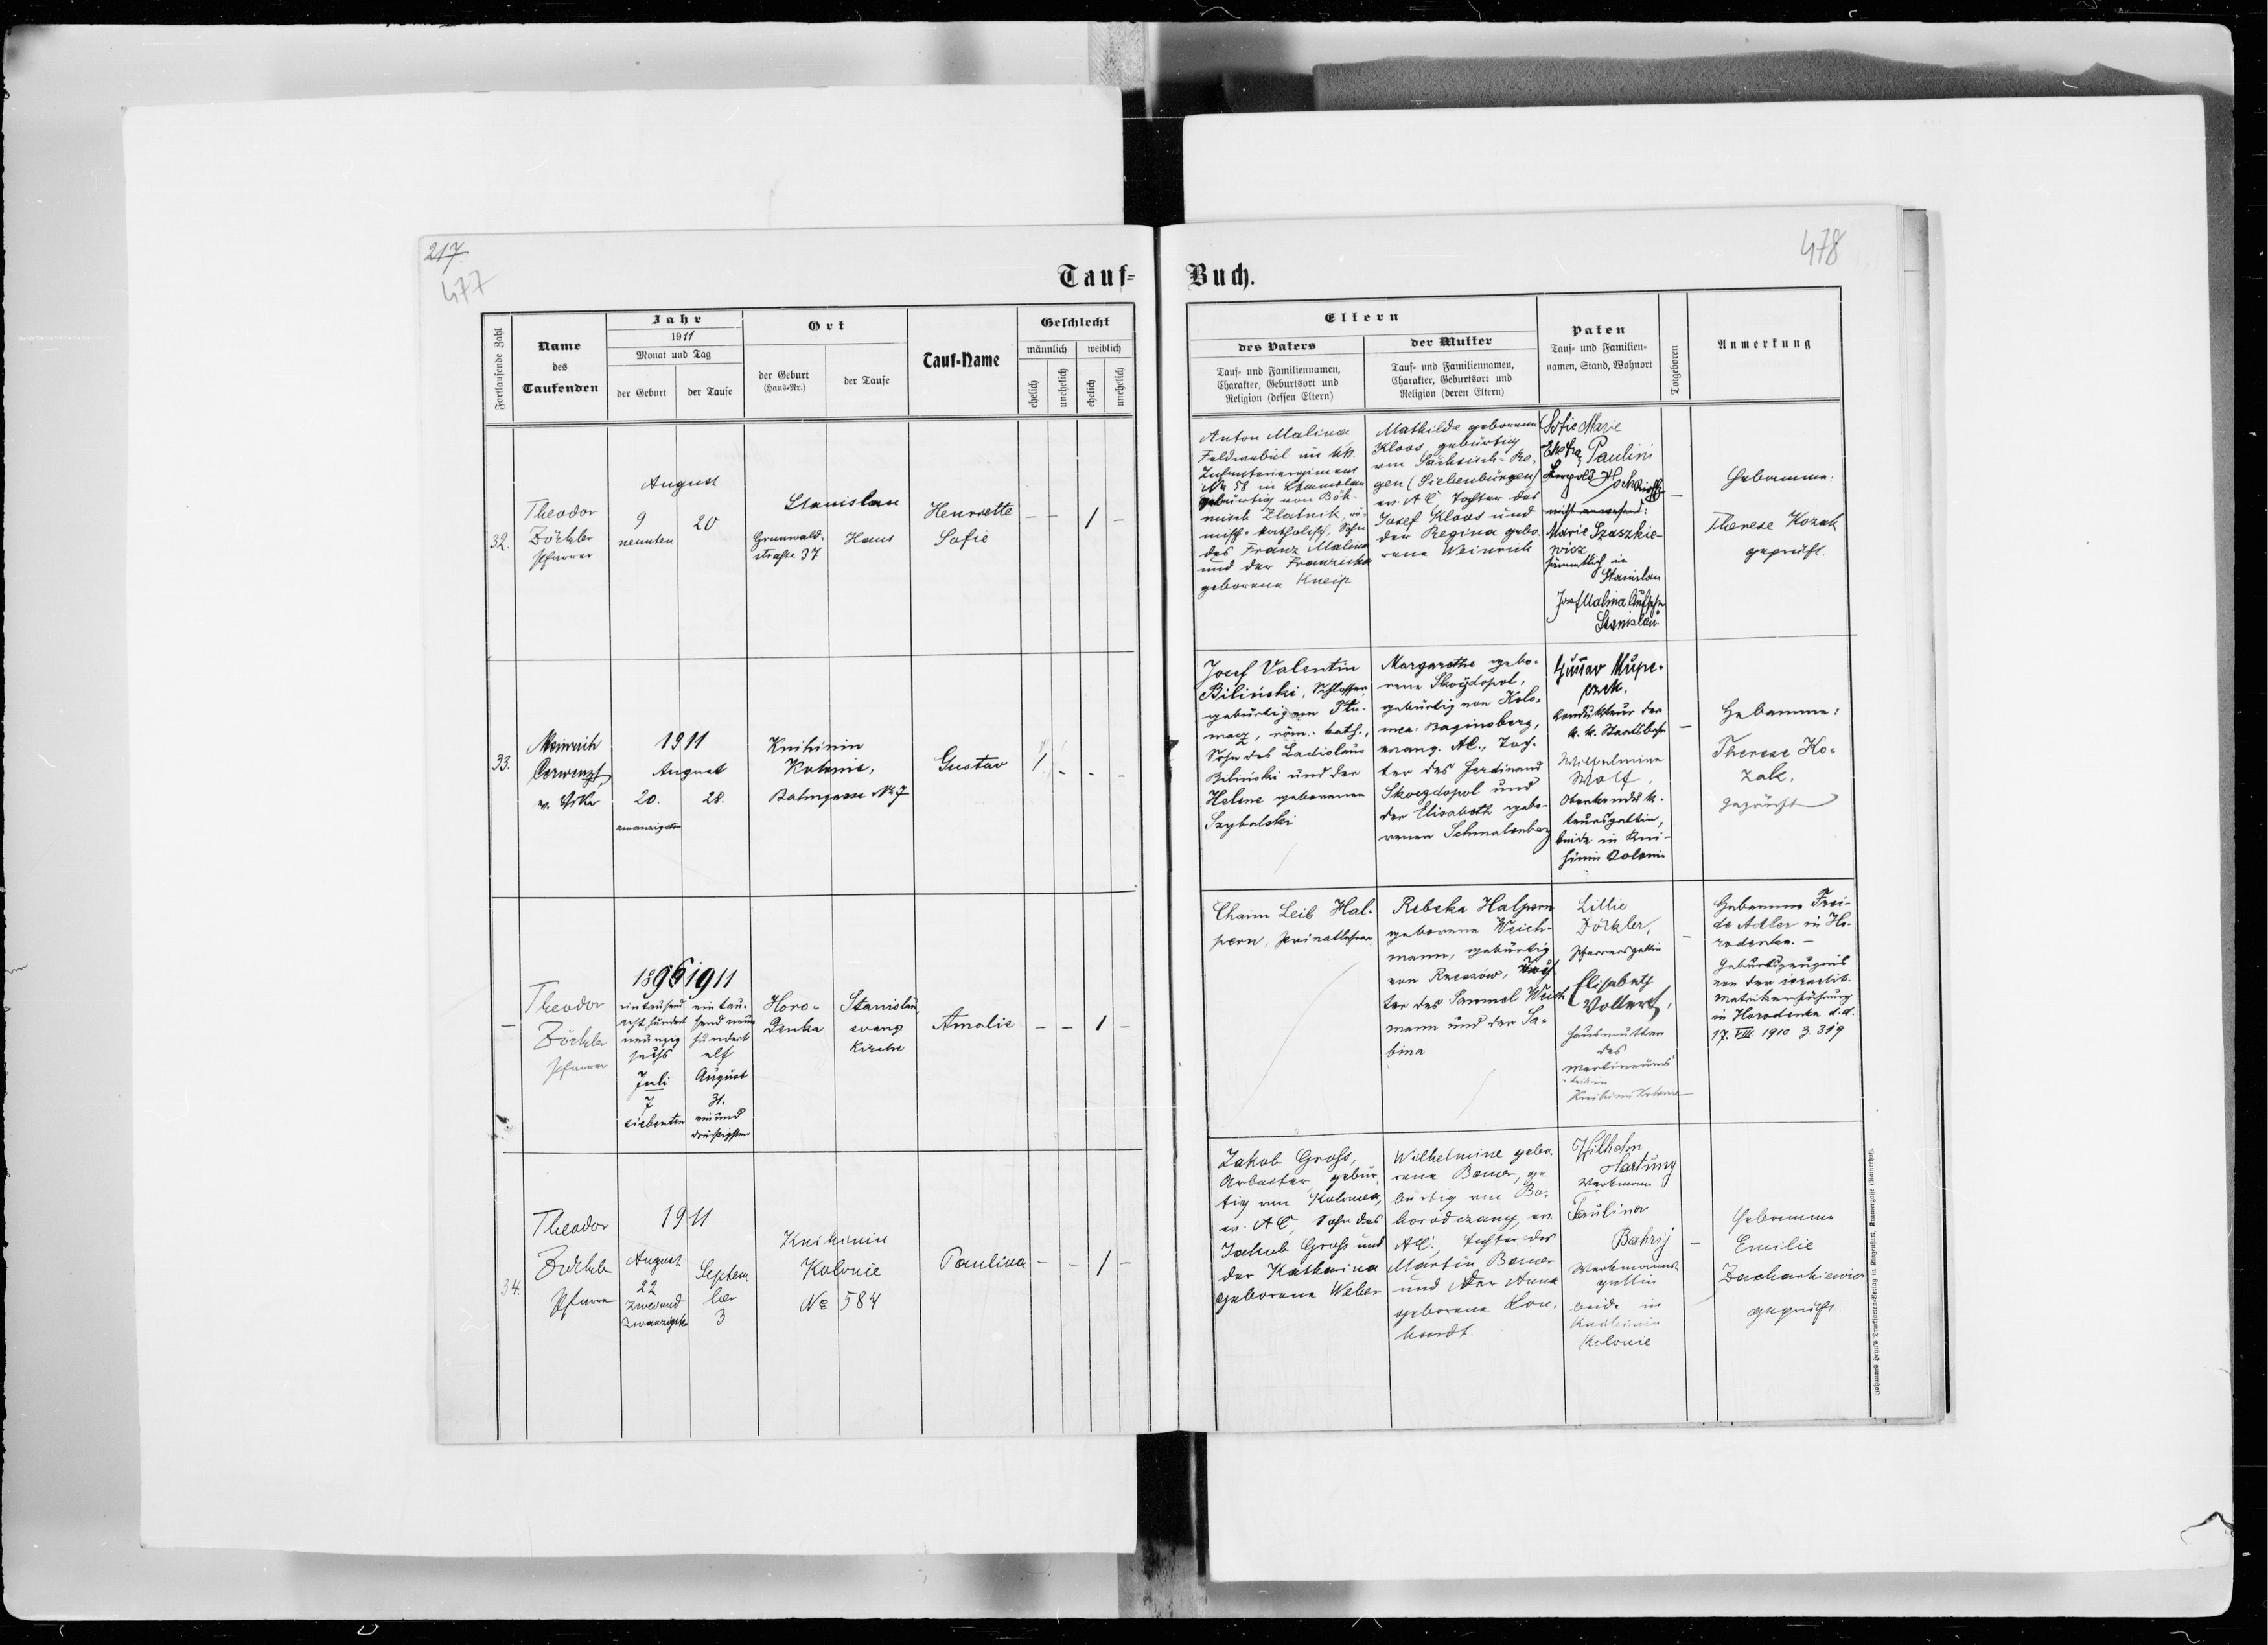 217.
477
478
Tauf-
Buch.
Fortlaufende Zahl
Name
des
Taufenden
Jahr
1911
Monat und Tag
der Geburt
der Taufe
Ort
der Geburt
(Haus-Nr.)
der Taufe
Tauf-Name
Geschlecht
männlich
weiblich
ehelich
unehelich
ehelich
unehelich
Eltern
des Vaters
Tauf- und Familiennamen,
Charakter, Geburtsort und
Religion (dessen Eltern)
der Mutter
Tauf- und Familiennamen,
Charakter, Geburtsort und
Religion (deren Eltern)
Paten
Tauf- und Familien-
namen, Stand, Wohnort
Totgeboren
Anmerkung
32.
Theodor
Zöckler
Pfarrer
August
9
neunten
20
Stanislau
Grunwald-
straße 37
Haus
Henriette
Sofie
- - 1 -
Anton Malina
Feldwebel im kk.
Infanterieregiment
No 58 in Stanislau
gebürtig von Böh-
misch Zlatnik, rö-
misch-katholisch, Sohn
des Franz Malina
und der Franziska
geborene Kneip
Mathilde geborene
Kloos, gebürtig
von Sächsisch-Re-
gen (Siebenbürgen)
ev. AC Tochter des
Josef Kloos und
der Regina gebo-
rene Weinrich
Sofie Marie
Paulini
Leopold
nicht anwesend:
Marie Szaszkie-
wicz
sämmtlich in
Stanislau
Josef Malina
Stanislau
-
Hebamme:
Therese Kozak
geprüft.
33.
Meinrich
v. Vikar
1911
August
20.
28.
zwanzigsten
Knihinin
Kolonie,
Bahngasse No 7
Gustav
1 - - -
Josef Valentin
Biliński, Schlosser,
gebürtig von Tłu-
macz, röm.-kath.,
Sohn des Ladislaus
Biliński und der
Helene geborenen
Szybalski
Margarethe gebo-
rene Skoezdopol,
gebürtig von Kolo-
mea-Baginsberg,
evang. AC., Toch-
ter des Ferdinand
Skoezdopol und
der Elisabeth gebo-
renen Schmalenberg
Gustav Mupe-
czek,
Kondukteur der
k. k. Staatsbahn
Wilhelmine
Wolf,
Oberkonduk-
teursgattin,
beide in Kni-
hinin Kolonie
-
Hebamme:
Therese Ko-
zak,
geprüft
-
Theodor
Zöckler
Pfarrer
1896 1911
eintausend
acht hundert
neunzig
sechs
Juli
7
siebenten
ein tau-
send neun
hundert
elf
August
31.
ein und
dreißigsten
Horo-
denka
Stanislau,
evang
Kirche
Amalie
- - 1 -
Chaim Leib Hal-
pern, Privatlehrer,
Rebeka Halpern
geborene Weich-
mann, gebürtig
von Rzeszów, Toch-
ter des Samuel Weich
mann und der Sa-
bina
Lillie
Zöckler,
Pfarrersgattin
Elisabeth
Vollerth,
Hausmutter
des
Martineums
beide in
Knihinin Kolonie
-
Hebamme Frei-
de Adler in Ho-
rodenka. -
Geburtszeugnis
von der israelit.
Matrikenführung
in Horodenka d.d.
17. VIII 1910 Z. 319
34.
Theodor
Zöckler
Pfarrer
1911
August
22
zweiund
zwanzigsten
Septem
ber
3
Knihinin
Kolonie
No 584
Paulina
- - 1 -
Jakob Groß,
Arbeiter, gebür-
tig von Kolomea,
ev. AC, Sohn des
Jakob Groß und
der Katharina
geborene Weber
Wilhelmine gebo-
rene Bauer, ge
bürtig von Bo-
horodczany, ev.
AC., Tochter des
Martin Bauer
und der Anna
geborene Leon-
hardt.
Wilhelm
Hartung
Werkmann
Paulina
Bahrij
Werkmanns-
gattin
beide in
Knihinin
Kolonie
-
Hebamme
Emilie
Zacharkiewicz
geprüft.